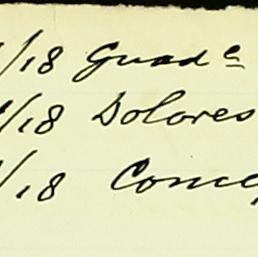 /18 Guad e
/18 Dolores
/18 Conce